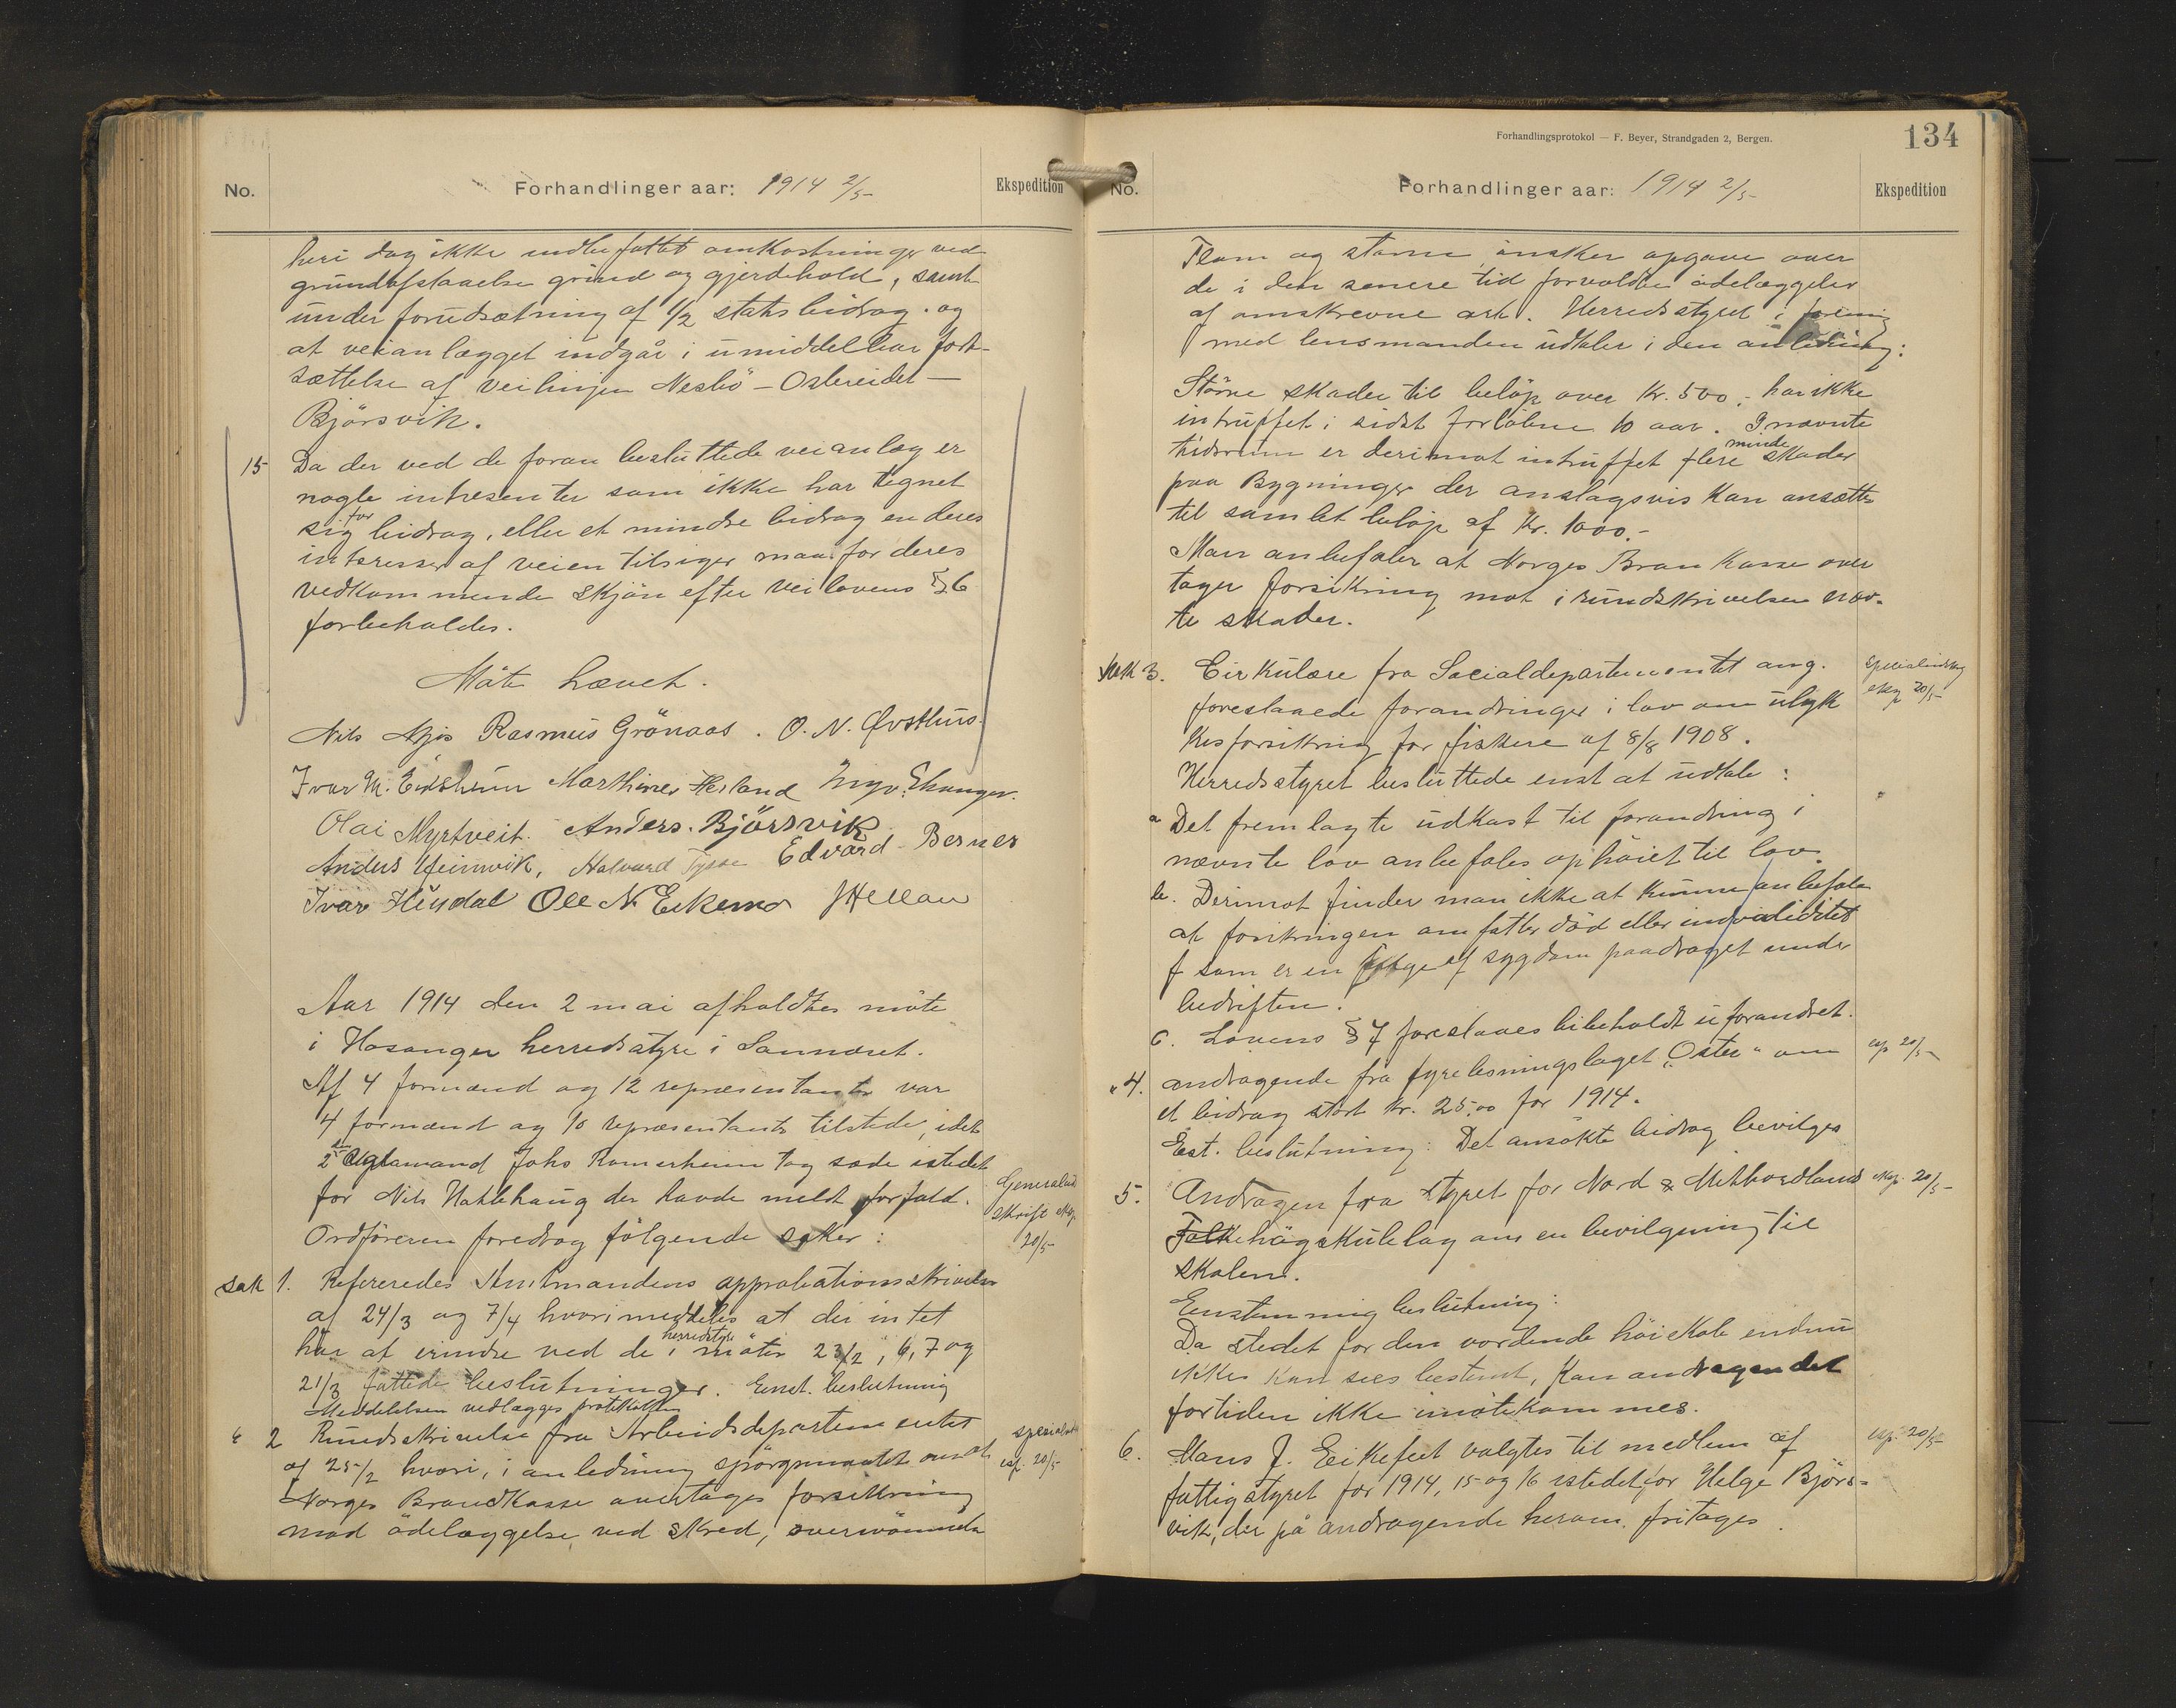 No.
Forhandlinger aar: 1914 2/5-
Ekspedition
heri dog ikke indbefattet omkostninger ved
grundafstaaelse grind og gjerdehold, samt
under forudsætning af 1/2 statsbidrag. og
at veianlægget indgår i umiddelbar fort-
sættelse af veilinjen Nesbö - Osbreidet -
Björsvik.
15 Da der ved de foran besluttede veianlæg er
nogle intresenter som ikke har tegnet
sig for bidrag, eller et mindre bidrag en deres
interesser af veien tilsiger maa for deres
vedkommende skjön efter veilovens § 6
forbeholdes.
Möte hævet.
Nils Mjös Rasmus Grönaas. O. N. Øvsthus.
Ivar M. Eidsheim Marthines Herland Ingv. Ekanger.
Olai Myrtveit. Anders. Björsvik
Anders Heimvik, Halvard Tysse Edvard Berner
Ivar Hindal Ole N Eikemo J Hellan
Aar 1914 den 2 mai afholdtes möte
i Hosanger herredsstyre i Sannæset.
Af 4 formænd og 12 repræsentanter var
4 formænd og 10 repræsentanter tilstede, idet
2den Johs Romarheim tog sæde istedet
for Nils Hatlehaug der havde meldt forfald.
Ordföreren foredrog fölgende saker:
Generaludskrift eksp 20/5-
sak 1. Refereredes Amtmandens approbationsskrivelse
af 24/3 og 7/4 hvori meddeles at der intet
har at erindre ved de i herredsstyre möter 23/2, 6, 7 og
21/3 fattede beslutninger. Eenst. beslutning
Meddelelsen vedlægges protokollen
" 2 Rundskrivelse fra Arbeidsdepartementet
af 25/2 hvori, i anledning spörgsmaalet om at
Norges Brandkasse overtages forsikring
mod ödelæggelse ved skred, oversvömmelse
esp. 20/5-
Forhandlingsprotokol — F. Beyer, Strandgaden 2, Bergen.
134
No.
Forhandlinger aar: 1914 2/5-
Ekspedition
Flom og storm önsker opgave over
de i den senere tid forvoldte ödelæggelser
af omskrevne art. Herredsstyret i forening
med lensmanden udtaler i den anledning:
Större skader til belöp over Kr. 500,- har ikke
intruffet i sidst forlöbne 10 aar. I nævnte
tidsrum er derimot intruffet flere mindre skader
paa Bygninger der anslagsvis kan ansættes
til samlet belöp af Kr. 1000.-
Man anbefaler at Norges Brankasse over
tager forsikring mot i rundskrivelsen næv-
te skader.
sak 3. Cirkulære fra Socialdepartementet ang.
foreslaaede forandringer i lov om ulyk
kesforsikring for fiskere af 8/8 1908.
esp 20/5-
Herredsstyret besluttede enst at udtale:
a Det fremlagte udkast til forandring i
nævnte lov anbefales ophöiet til lov.
b. Derimot finder man ikke at kunne anbefale
at forsikringen omfatter död eller invaliditet
som er en fölge af sygdom paadraget under
bedriften.
c. Lovens § 7 foreslaaes bibeholdt uforandret.
" 4. andragende fra fyrelysningslaget "Oster" om
et bidrag stort Kr. 25,00 for 1914.
esp 20/5-
Est. beslutning: Det ansökte bidrag bevilges
5. Andragen fra styret for Nord & Mithordland
Folkehögskulelag om en bevilgning til
skolen.
esp. 20/5-
Eenstemmig beslutning:
Da stedet for den vordende höiskole endnu
ikke kan sees bestemt, kan andragendet
fortiden ikke imötekommes.
6. Mons J. Eikefet valgtes til medlem af
fattigstyret for 1914, 15 og 16 istedetfor Helge Björs-
vik, der på andragende herom fritages.
esp. 20/5-